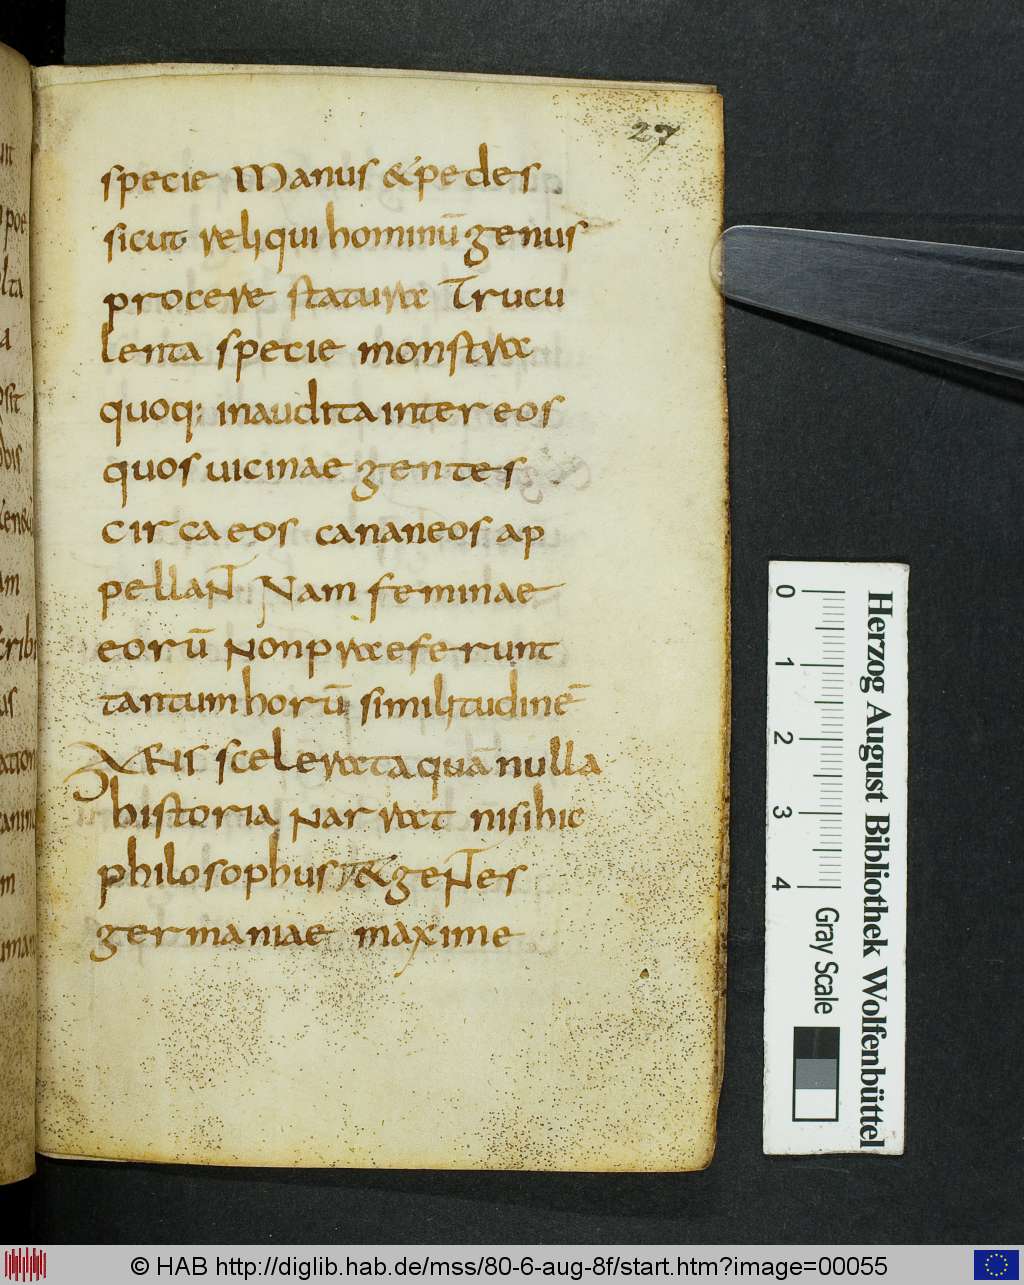 27
specie Manus & pedes
sicut reliqui hominū genus
procere statura Trucu
lenta specie monstra
quoq; inaudita inter eos
quos uicinae gentes
circa eos cananeos ap
pellanT Nam feminae
eorū Non praeferunt
tantum horū similitudinē
scelerata quā nulla
historia Narrat nisi hic
philosophus & geNTes
germaniae maxime
0 1 2 3 4
Gray Scale
Herzog August Bibliothek Wolfenbüttel
© HAB http://diglib.hab.de/mss/80-6-aug-8f/start.htm?image=00055